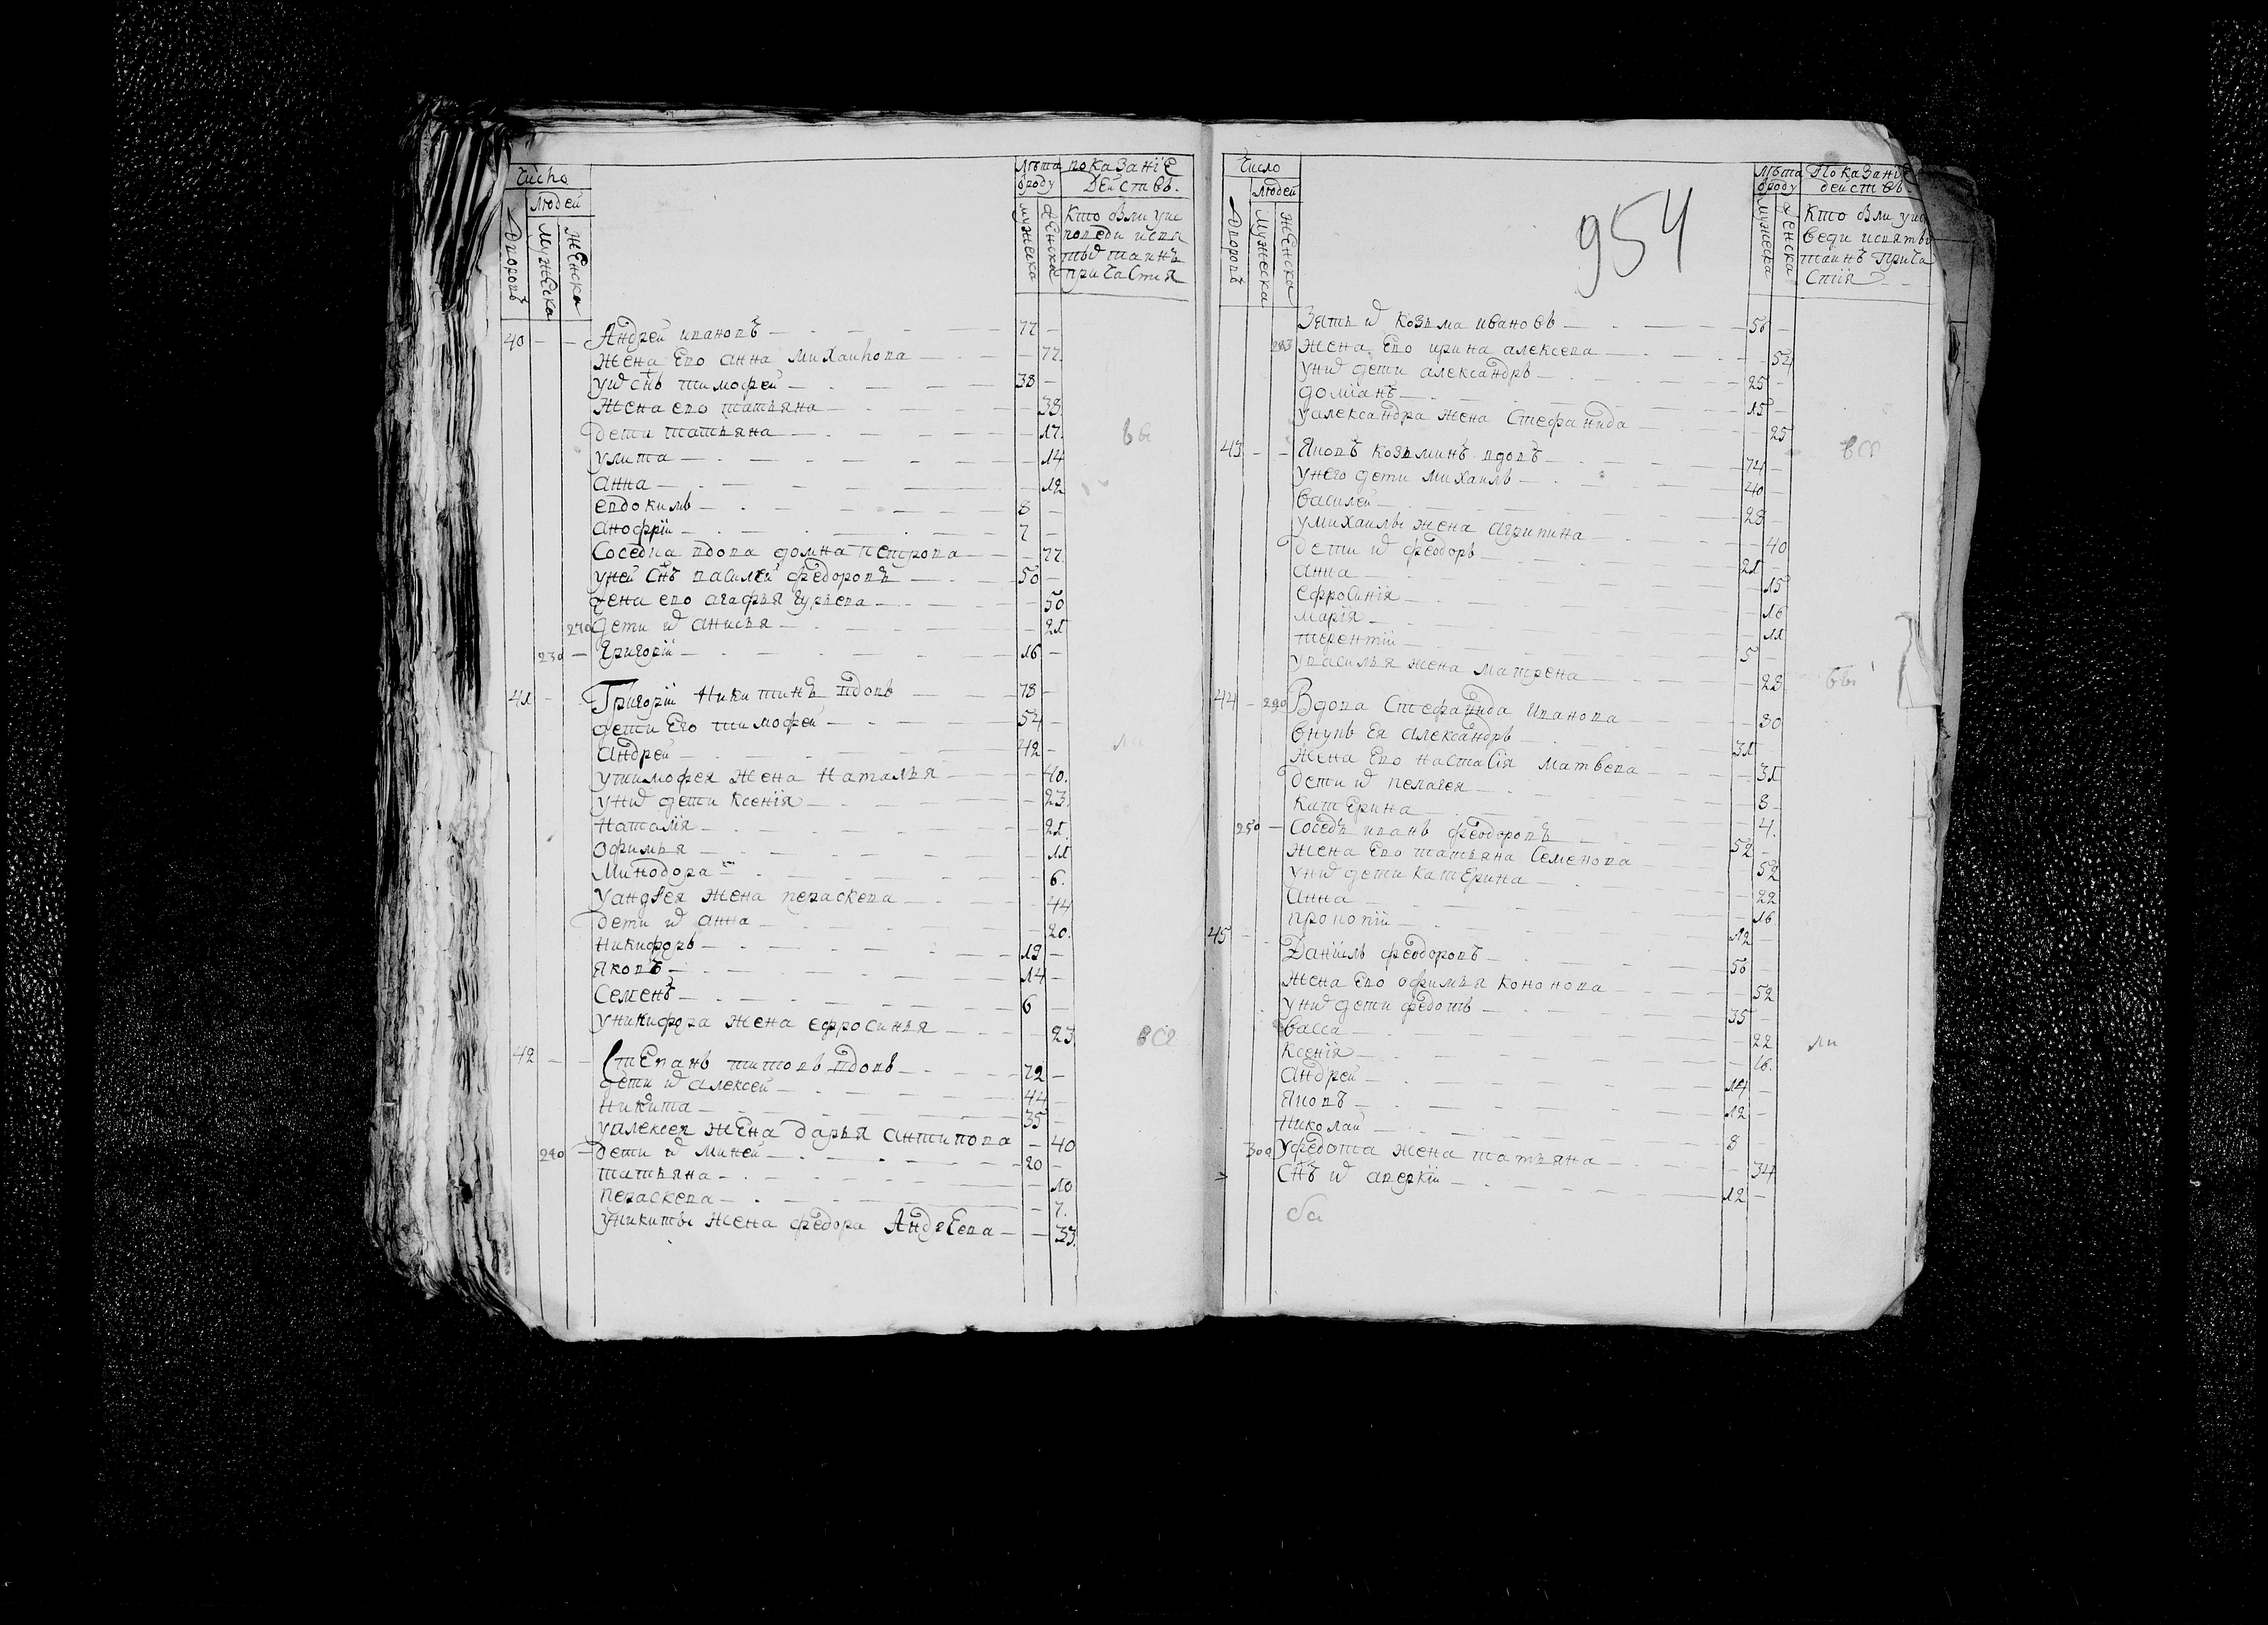 Число
Людей
Дворовъ
Мужеска
Женска
Лѣта
ѿроду
мужеска
женска
показаніе
действъ.
Кто были у ис
поведи и свя
тых таинъ
причастія
40 Андрей ивановъ 77
жена ево анна михаилова 77
у них снъ тимофей 38
жена ево татьяна 38
дети татьяна 17.
улита 14
анна 12
евдокимъ 8
анофрїй 7
Соседка вдова домна петрова 77
у ней снъ василей федоровъ 50
жена ево агафья гурьева 50
270 дети их анисья 21
230 Григорїй 16
41 Григорїй Никитинъ вдовъ 78
дети Его тимофей 54
Андрей 42
у тимофея жена Наталья 40.
у них дети ксенїя 23.
Наталїя 21.
Офимья 11
Минодора 6.
у андрея жена параскева 44
дети их анна 20.
Никифоръ 19
яковъ 14
Семенъ 6
у никифора жена ефросинья 23
42 Степанъ титовъ вдовъ 72
дети их алексей 44
никита 35
у алексея жена дарья антипова 40
240 дети их миней 20
татьяна 10
параскева 7.
у никиты жена федора Андреева 33.
954
Число
Людей
Дворовъ
Мужеска
Женска
Лѣта
ѿроду
мужеска
женска
Показаніе
действъ.
Кто были у испо
веди и святых
таинъ прича
стїя
Зять их козьма ивановъ 56
283 жена ево ирина алексева 54
у них дети александръ 25
домїанъ 15
у александра жена Стефанида 25
43 Яковъ козьминъ вдовъ 74
у него дети михаилъ 40
василей 28
у михаилы жена агрипина 40
дети их феодоръ 21
анна 15
ефросинїя 16
марїя 11
терентїй 5
у василья жена матрена 28
44 290 Вдова Стефанида Иванова 80
внукъ Ея александръ 31
жена Ево настасїя матвева 31
дети их пелагея 8
катерина 4.
250 Соседъ иванъ феодоровъ 52
жена Ево татьяна Семенова 52
у них дети катерина 22
анна 16
прокопїй 12
45 Данїилъ феодоровъ 56
жена Ево офимья кононова 52
у них дети федотъ 35
васса 22
ксенїя 16.
андрей 14
яковъ 12
николай 8
300 у федота жена татьяна 34
Снъ их аверкїй 12